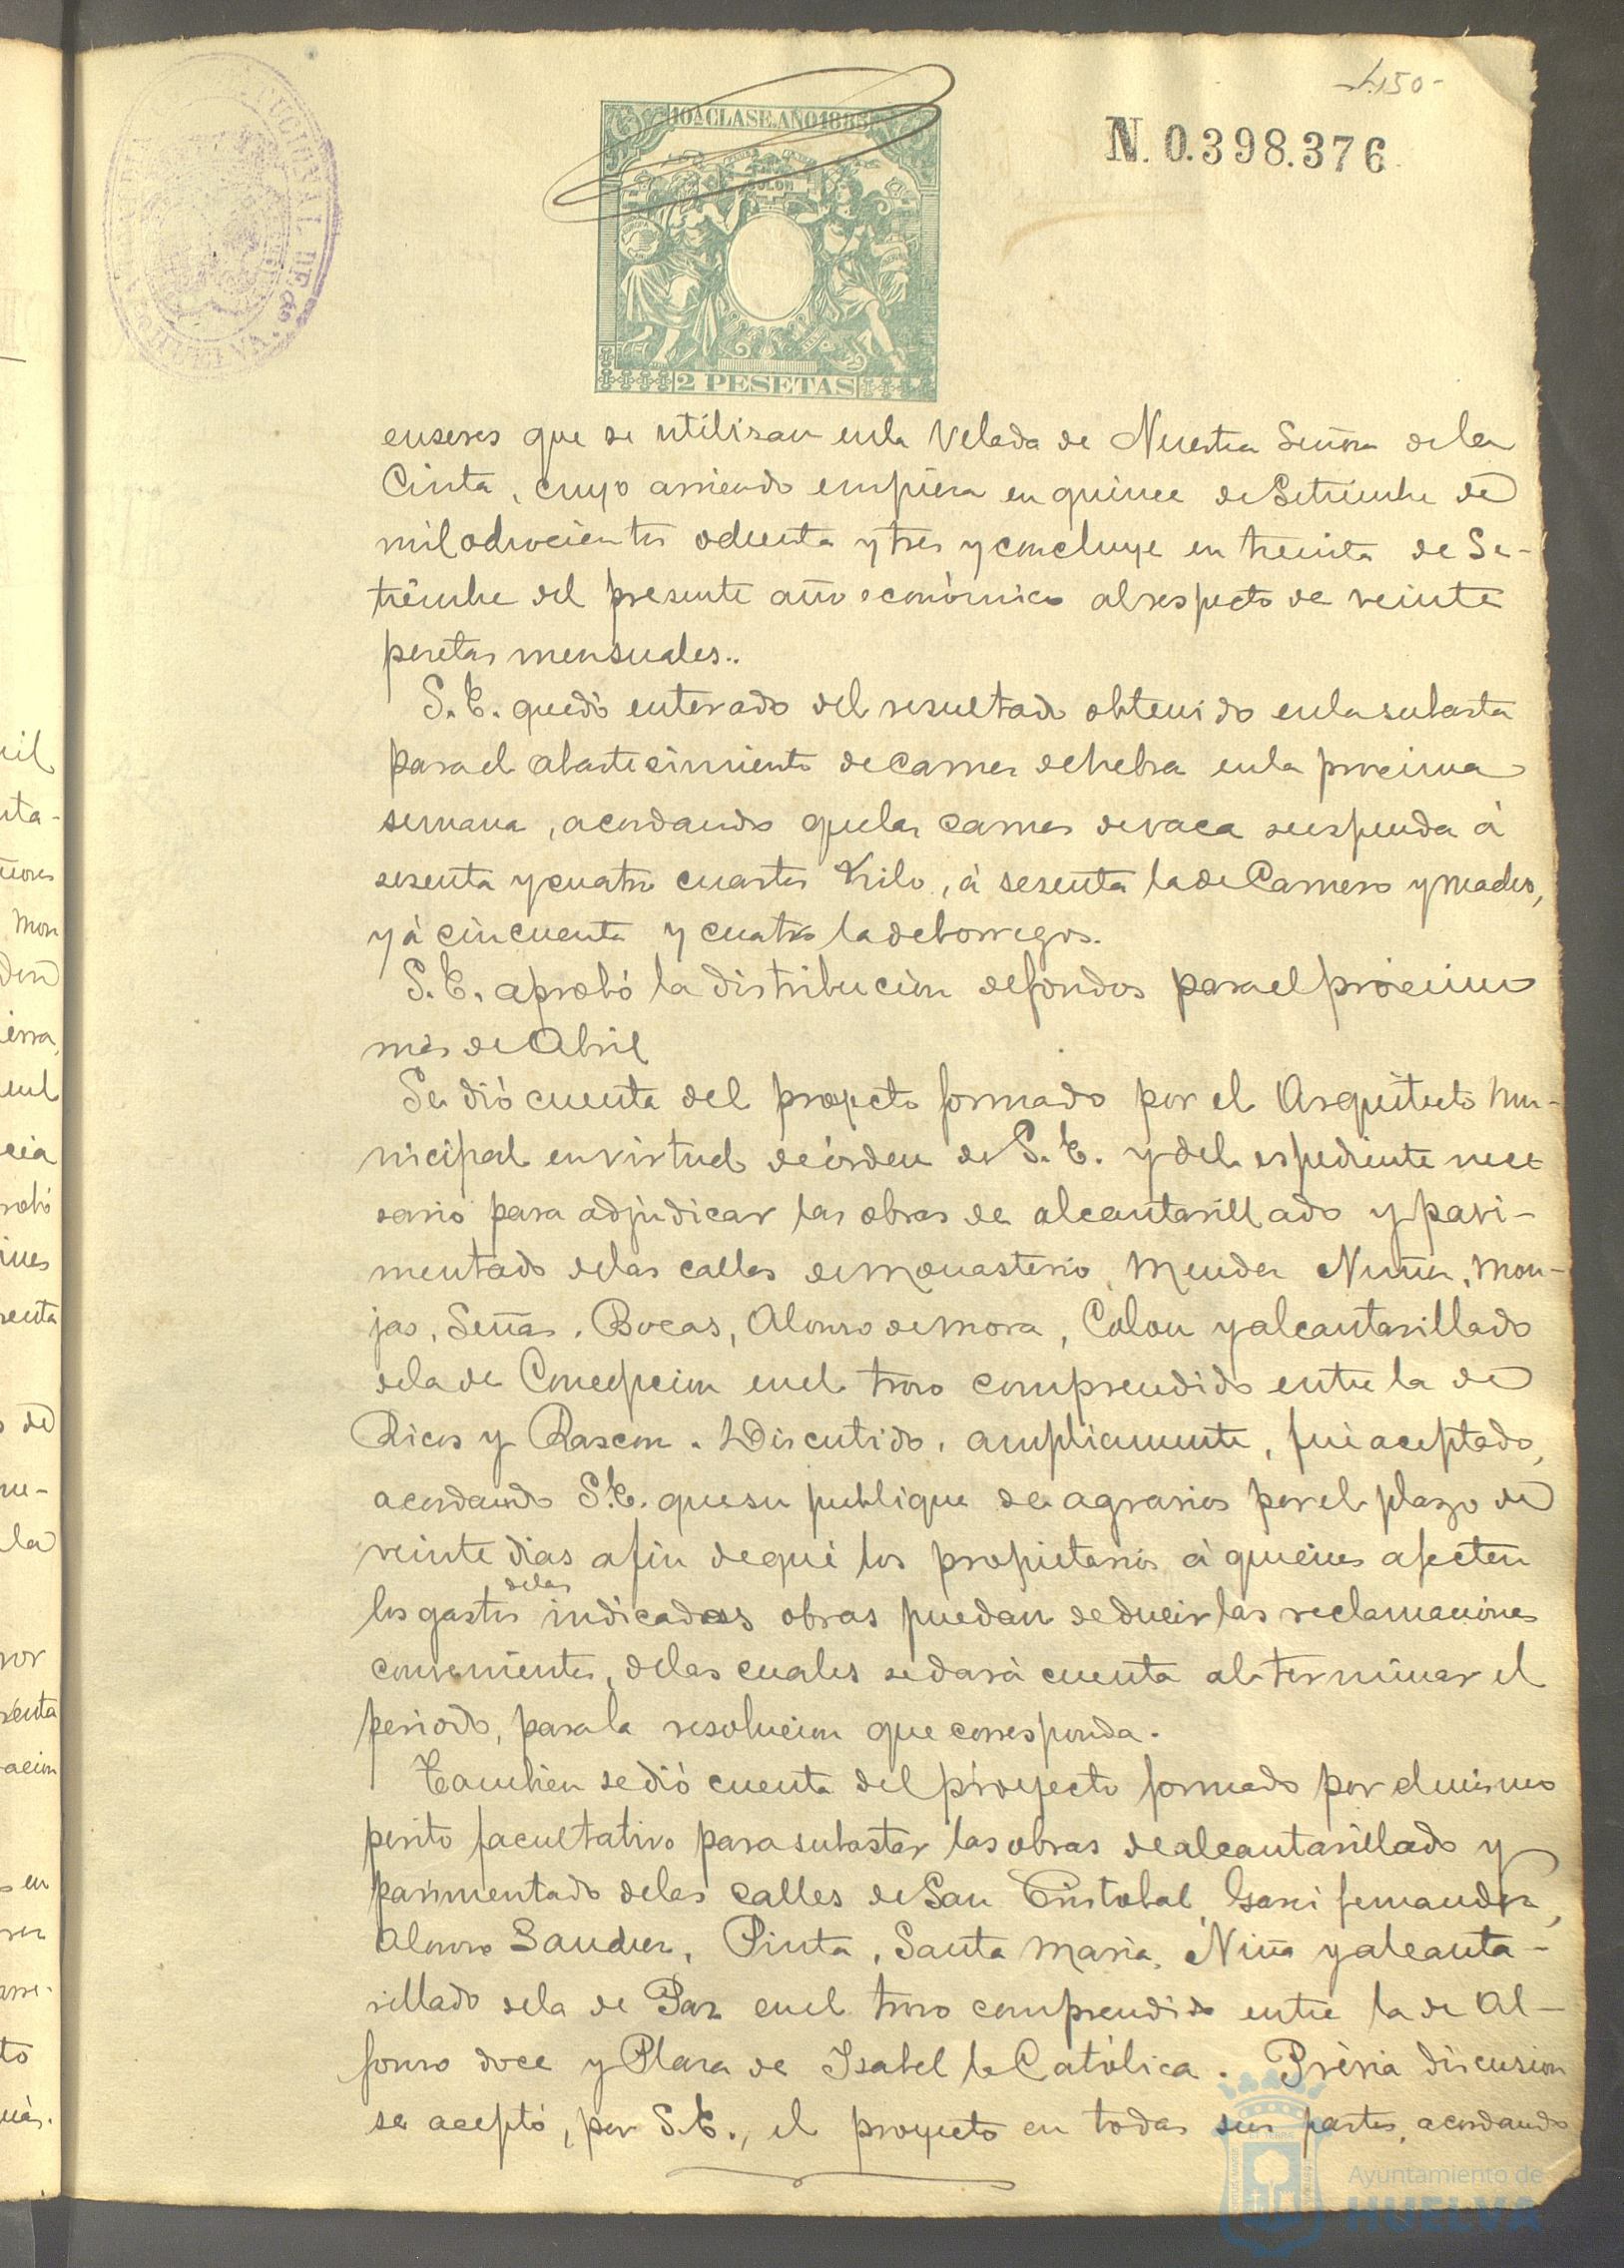 150-
10ª CLASE. AÑO 188
N. 0.398.376
2 PESETAS
enseres que se utilizan en la Velada de Nuestra Señora de la
Cinta, cuyo arriendo empieza en quince de Setiembre de
mil ochocientos ochenta y tres y concluye en treinta de Se-
tiembre del presente año económico al respecto de veinte
pesetas mensuales..
S. E. quedó enterado del resultado obtenido en la subasta
para el abastecimiento de carnes de hebra en la procsima
semana, acordando que las carnes de vaca se espenda á
sesenta y cuatro cuartos Kilo, á sesenta la de Carnero y macho,
y á cincuenta y cuatro la de borregos.
S. E. aprobó la distribucion de fondos para el prócsimo
mes de Abril
Se dió cuenta del proyecto formado por el Arquitecto Mu-
nicipal en virtud de órden de S. E. y del espediente nece
sario para adjudicar las obras de alcantarillado y pavi-
mentado de las calles de Monasterio, Mendez Nuñez, Mon-
jas, Señas, Bocas, Alonso de Mora, Colon y alcantarillado
de la de Concepcion en el trozo comprendido entre la de
Ricos y Rascon. Discutido, ampliamente, fué aceptado,
acordando S. E. que su publique de agravios por el plazo de
veinte dias a fin de que los propietarios á quienes afecten
los gastos de las indicadas obras puedan deducir las reclamaciones
convenientes, de las cuales se dará cuenta al terminar el
periodo, para la resolucion que corresponda.
Tambien se dió cuenta del proyecto formado por el mismo
perito facultativo para subastar las obras de alcantarillado y
pavimentado de las calles de San Cristobal, Garci fernandez,
Alonso Sanchez, Pinta, Santa Maria, Niña y alcanta-
rillado de la de Paz en el trozo comprendido entre la de Al-
fonso doce y Plaza de Isabel la Católica. Prévia discusion
se aceptó, por S. E., el proyecto en todas sus partes, acordando
Ayuntamiento de
HUELVA